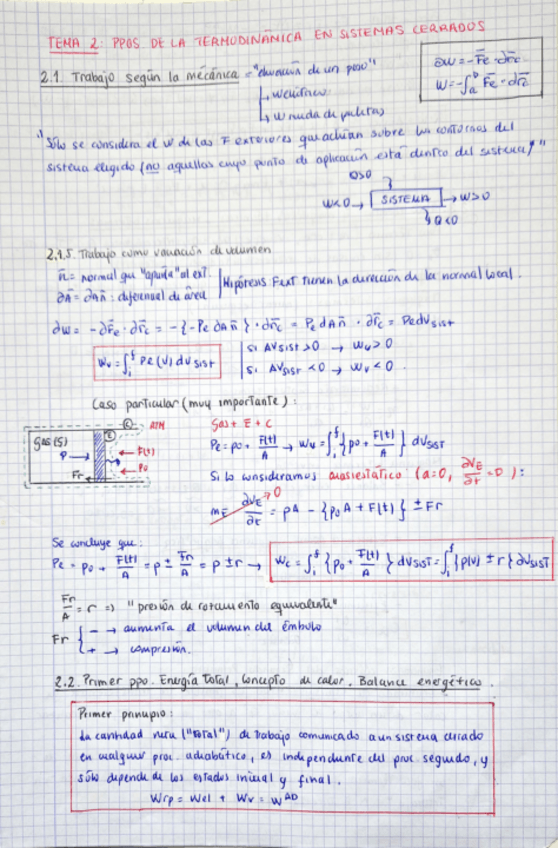 TEMA 2: PPOS DE LA TERMODINÁMICA EN SISTEMAS CERRADOS
2.1. Trabajo según la mecánica = "elevación de un peso"
↳ Weléctrico
↳ W rueda de paletas
∂W = -F̄e · dr̄c
W = -∫ₐᵇ F̄e · dr̄c
"Sólo se considera el W de las F exteriores que actúan sobre los contornos del
sistema elegido (no aquellas cuyo punto de aplicación está dentro del sistema)"
Q>0
W<0 → SISTEMA → W>0
Q<0
2.1.5. Trabajo como variación de volumen
n̄ = normal que "apunta" al ext.
∂Ā = ∂An̄ : diferencial de área
Hipótesis Fext tienen la dirección de la normal local.
∂W = -∂F̄e · ∂r̄c = -{-Pe ∂A n̄} · ∂r̄c = Pe dA n̄ · ∂r̄c = Pe dV sist
Wv = ∫ᵢᶠ Pe (V) dV sist
Si ΔVsist > 0 → Wv > 0
Si ΔVsist < 0 → Wv < 0.
Caso particular (muy importante):
Gas (S)
P
Fr
C
E
ATM
F(t)
Po
Gas + E + C
Pe = po + F(t)/A → Wv = ∫ᵢᶠ {po + F(t)/A} dVSIST
Si lo consideramos cuasiestático (a=0, ∂VE/∂t = 0):
mE ∂VE/∂t → 0 = pA - {poA + F(t)} ± Fr
Se concluye que:
Pe = po + F(t)/A = p ± Fr/A = p ± r → Wc = ∫ᵢᶠ {po + F(t)/A} dVSIST = ∫ᵢᶠ {p(v) ± r} ∂VSIST
Fr/A = r => "presión de rozamiento equivalente"
Fr { - → aumenta el volumen del émbolo
+ → compresión.
2.2. Primer ppo. Energía Total, Concepto de calor. Balance energético.
Primer principio:
La cantidad neta ("total") de trabajo comunicado a un sistema cerrado
en cualquier proc. adiabático, es independiente del proc seguido, y
sólo depende de los estados inicial y final.
Wrp = Wel + Wv = W^AD